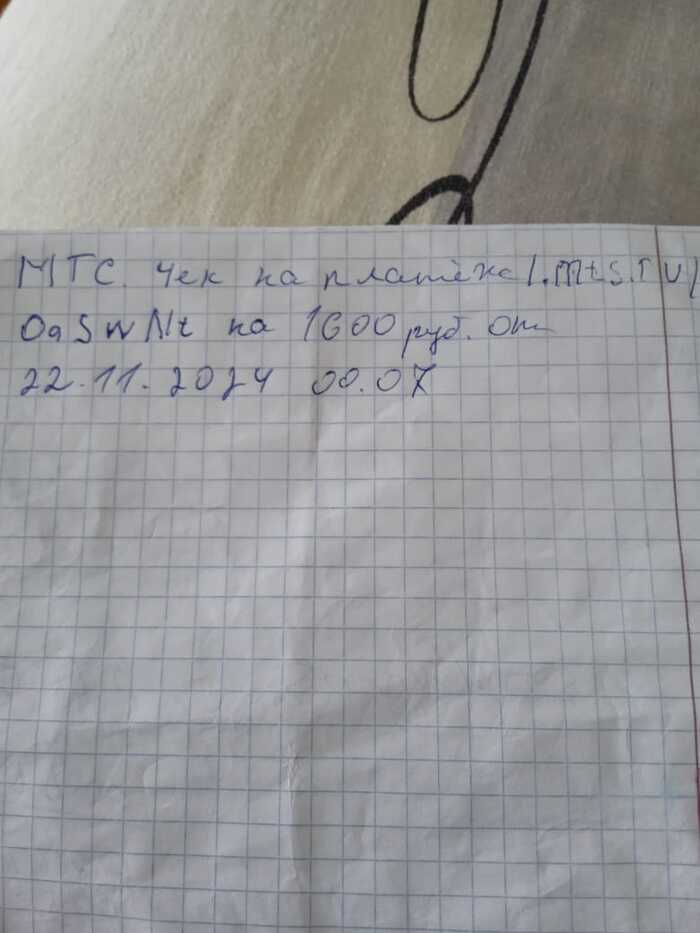 МТС. Чек на платеж l.mts.ru/
OaSwNt на 1600 руб. от
22.11.2024 00.07